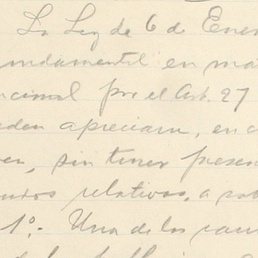 La Ley de 6 de Ener
undamental en ma
cional por el Art. 27
eden apreciarse, en c
en, sin tener presen
relativos, a sab
1º. Una de las cau